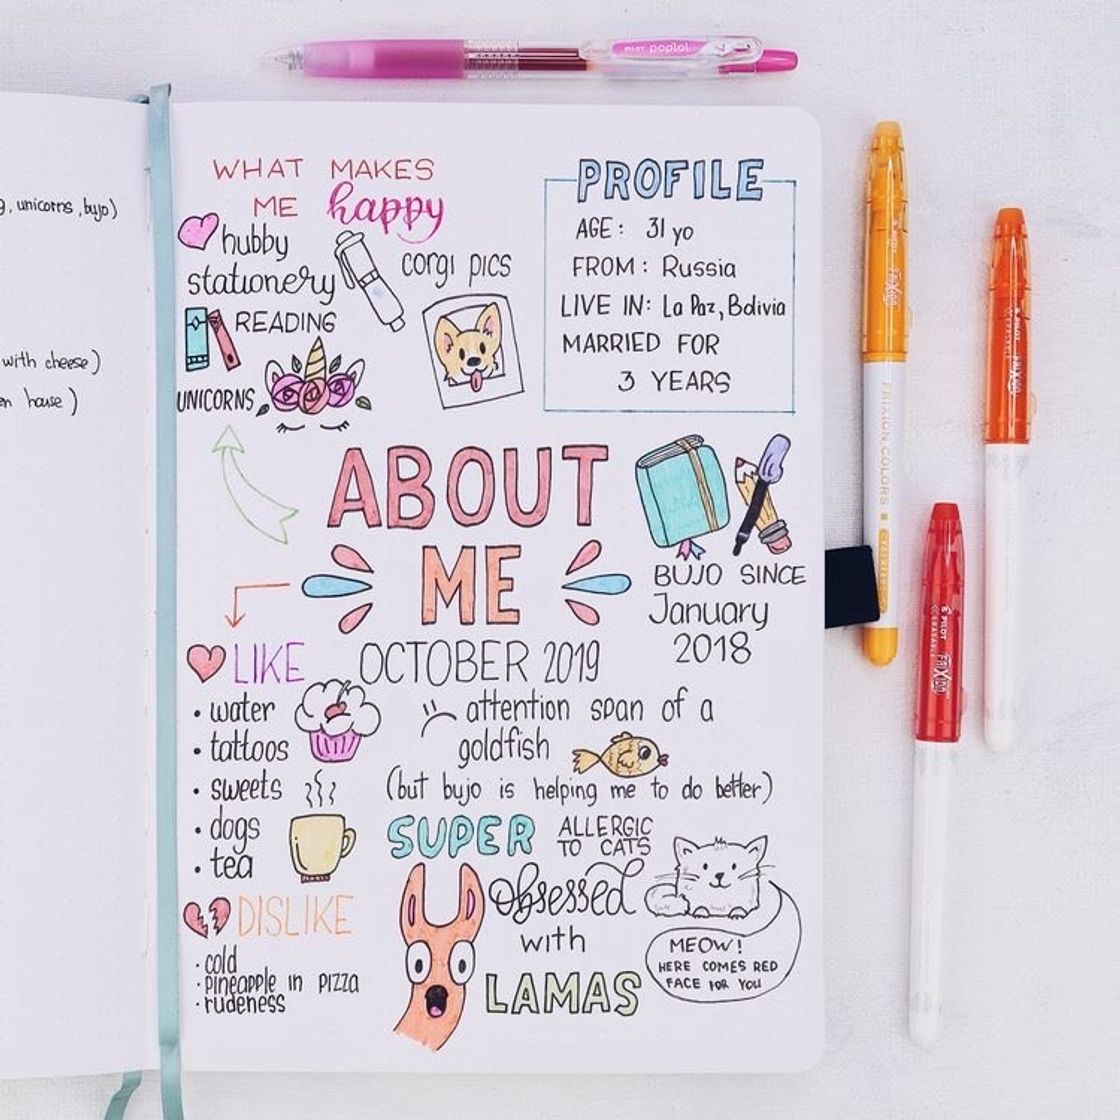 PILOT poplol
, unicorns, bujo)
with cheese)
house)
WHAT MAKES
ME happy
hubby
stationery
corgi pics
READING
UNICORNS
PROFILE
AGE: 31 yo
FROM: Russia
LIVE IN: La Paz, Bolivia
MARRIED FOR
3 YEARS
ABOUT
ME
OCTOBER 2019
BUJO SINCE
January
2018
LIKE
• water
• tattoos
• sweets
• dogs
• tea
DISLIKE
· cold
· pineapple in pizza
· rudeness
attention span of a
goldfish
(but bujo is helping me to do better)
SUPER ALLERGIC
TO CATS
obsessed
with
LAMAS
MEOW!
HERE COMES RED
FACE FOR YOU
PILOT FRIXION
FRIXION COLORS
PILOT FRIXION
ERASABLE
PILOT FRIXION
ERASABLE